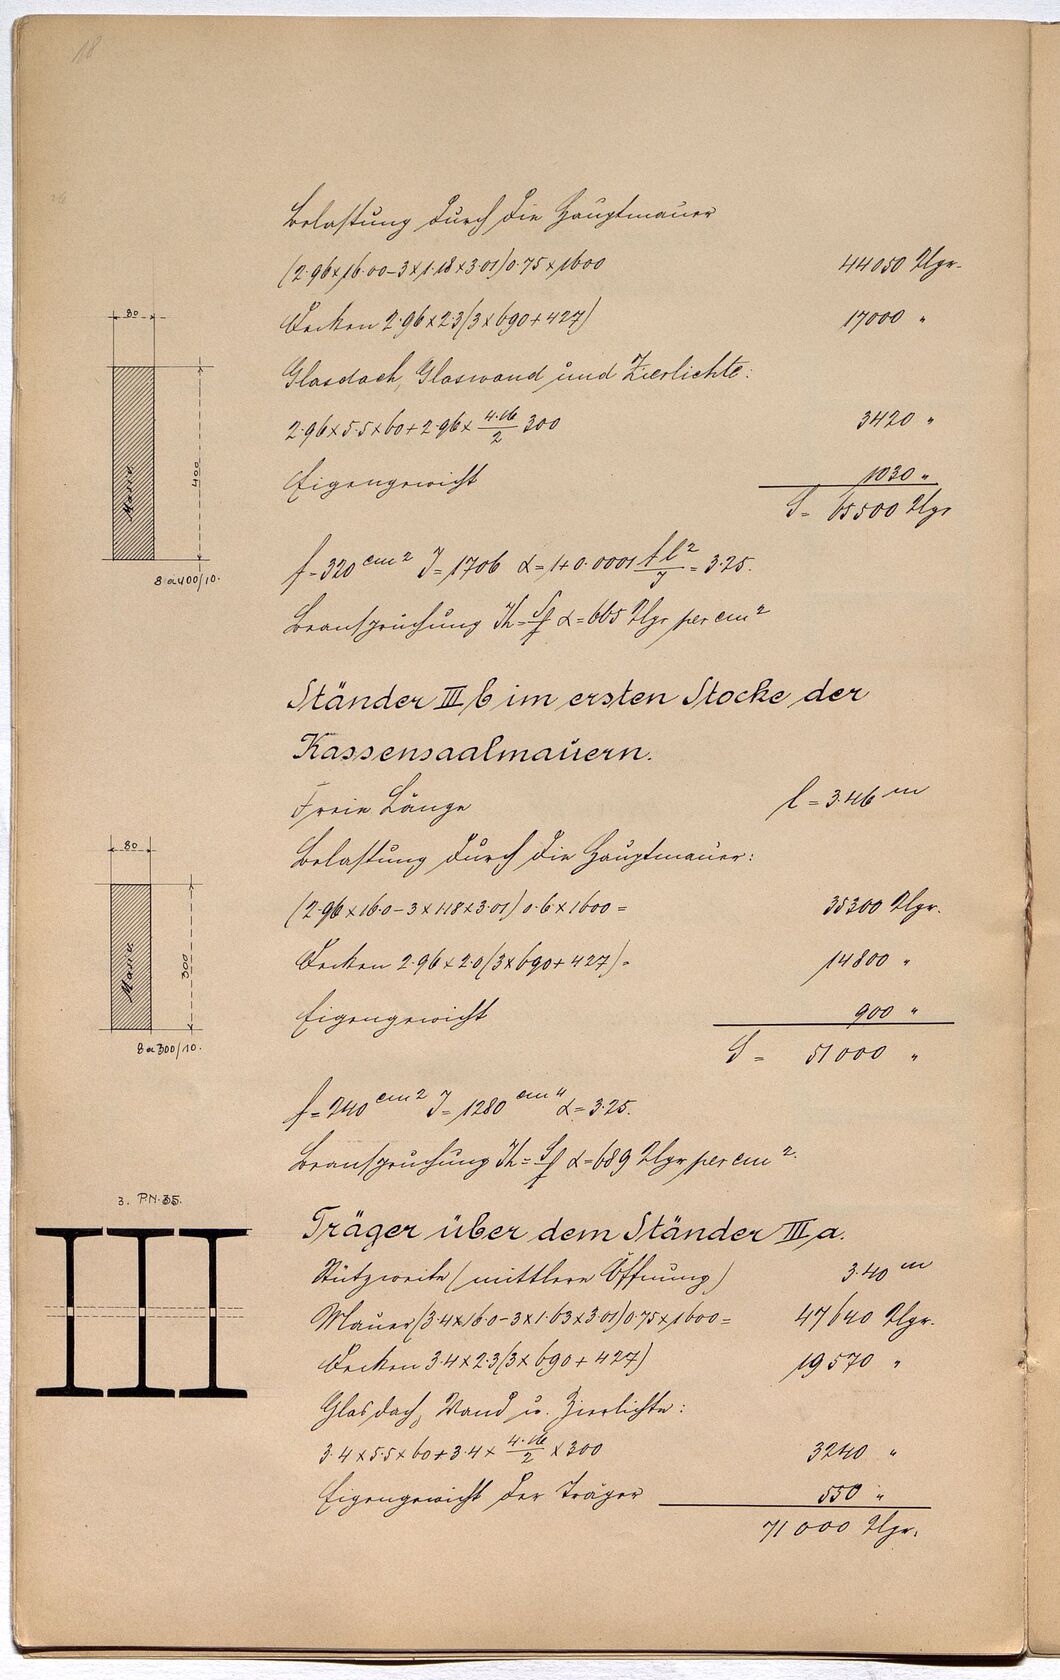 18
Belastung durch die Hauptmauer
(2·96×16·00–3×1·18×3·01)0·75×1600 44050 Klgr.
Decken 2·96×2·3(3×690+427) 17000 "
Glasdach, Glaswand und Zierlichte:
2·96×5·5×60+2·96×4·16/2 300 3420 "
Eigengewicht 1030 "
S= 65500 Klgr
80
400
Massiv
8 a 400/10.
f=320 cm² J=1706 α=1+0·0001 fl²/J=3·25.
Beanspruchung K=S/f α=665 Klgr per cm²
Ständer III b im ersten Stocke der
Kassensaalmauern.
Freie Länge l=3·46 m
Belastung durch die Hauptmauer:
(2·96×16·0–3×1·18×3·01)0·6×1600= 35300 Klgr.
Decken 2·96×2·0(3×690+427)= 14800 "
Eigengewicht 900 "
S= 51000 "
80
300
Massiv
8 a 300/10.
f=240 cm² J=1280 cm⁴ α=3·25.
Beanspruchung K=S/f α=689 Klgr per cm².
3. PN·35.
Träger über dem Ständer III a.
Stützweite (mittlere Öffnung) 3·40 m
Mauer(3·4×16·0–3×1·63×3·01)0·75×1600= 47640 Klgr.
Decken 3·4×2·3(3×690+427) 19570 "
Glasdach, Wand u. Zierlichte:
3·4×5·5×60+3·4×4·16/2×300 3240 "
Eigengewicht der Träger 550 "
71000 Klgr.